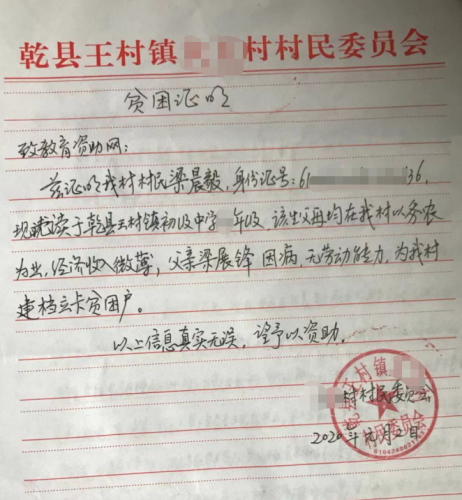 乾县王村镇 村村民委员会
贫困证明
致教育资助网:
兹证明我村村民梁晨毅,身份证号:61 36,
现就读于乾县王村镇初级中学 年级,该生父母均在我村以务农
为业,经济收入微薄,父亲梁展锋因病,无劳动能力,为我村
建档立卡贫困户。
以上信息真实无误,望予以资助。
村村民委员会
2020年 月 日